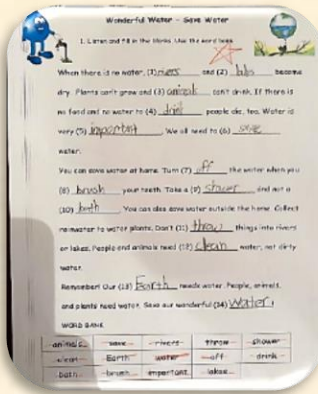 Wonderful Water - Save Water
1. Listen and fill in the blanks. Use the word bank
When there is no water, (1) rivers and (2) become
dry. Plants can't grow and (3) animals can't drink. If there is
no food and no water to (4) drink people die, too. Water is
very (5) important. We all need to (6) save
water.
You can save water at home. Turn (7) off the water when you
(8) brush your teeth. Take a (9) shower and not a
(10) bath. You can also save water outside the home. Collect
rainwater to water plants. Don't (11) throw things into rivers
or lakes. People and animals need (12) clean water, not dirty
water.
Remember! Our (13) Earth needs water. People, animals,
and plants need water. Save our wonderful (14) water!
WORD BANK
animals save rivers throw shower
clean Earth water off drink
bath brush important lakes